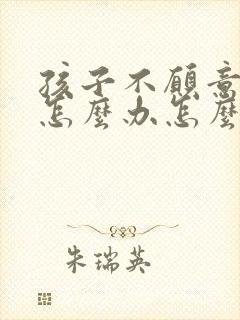 孩子不愿意
怎麼办怎麼
朱瑞英